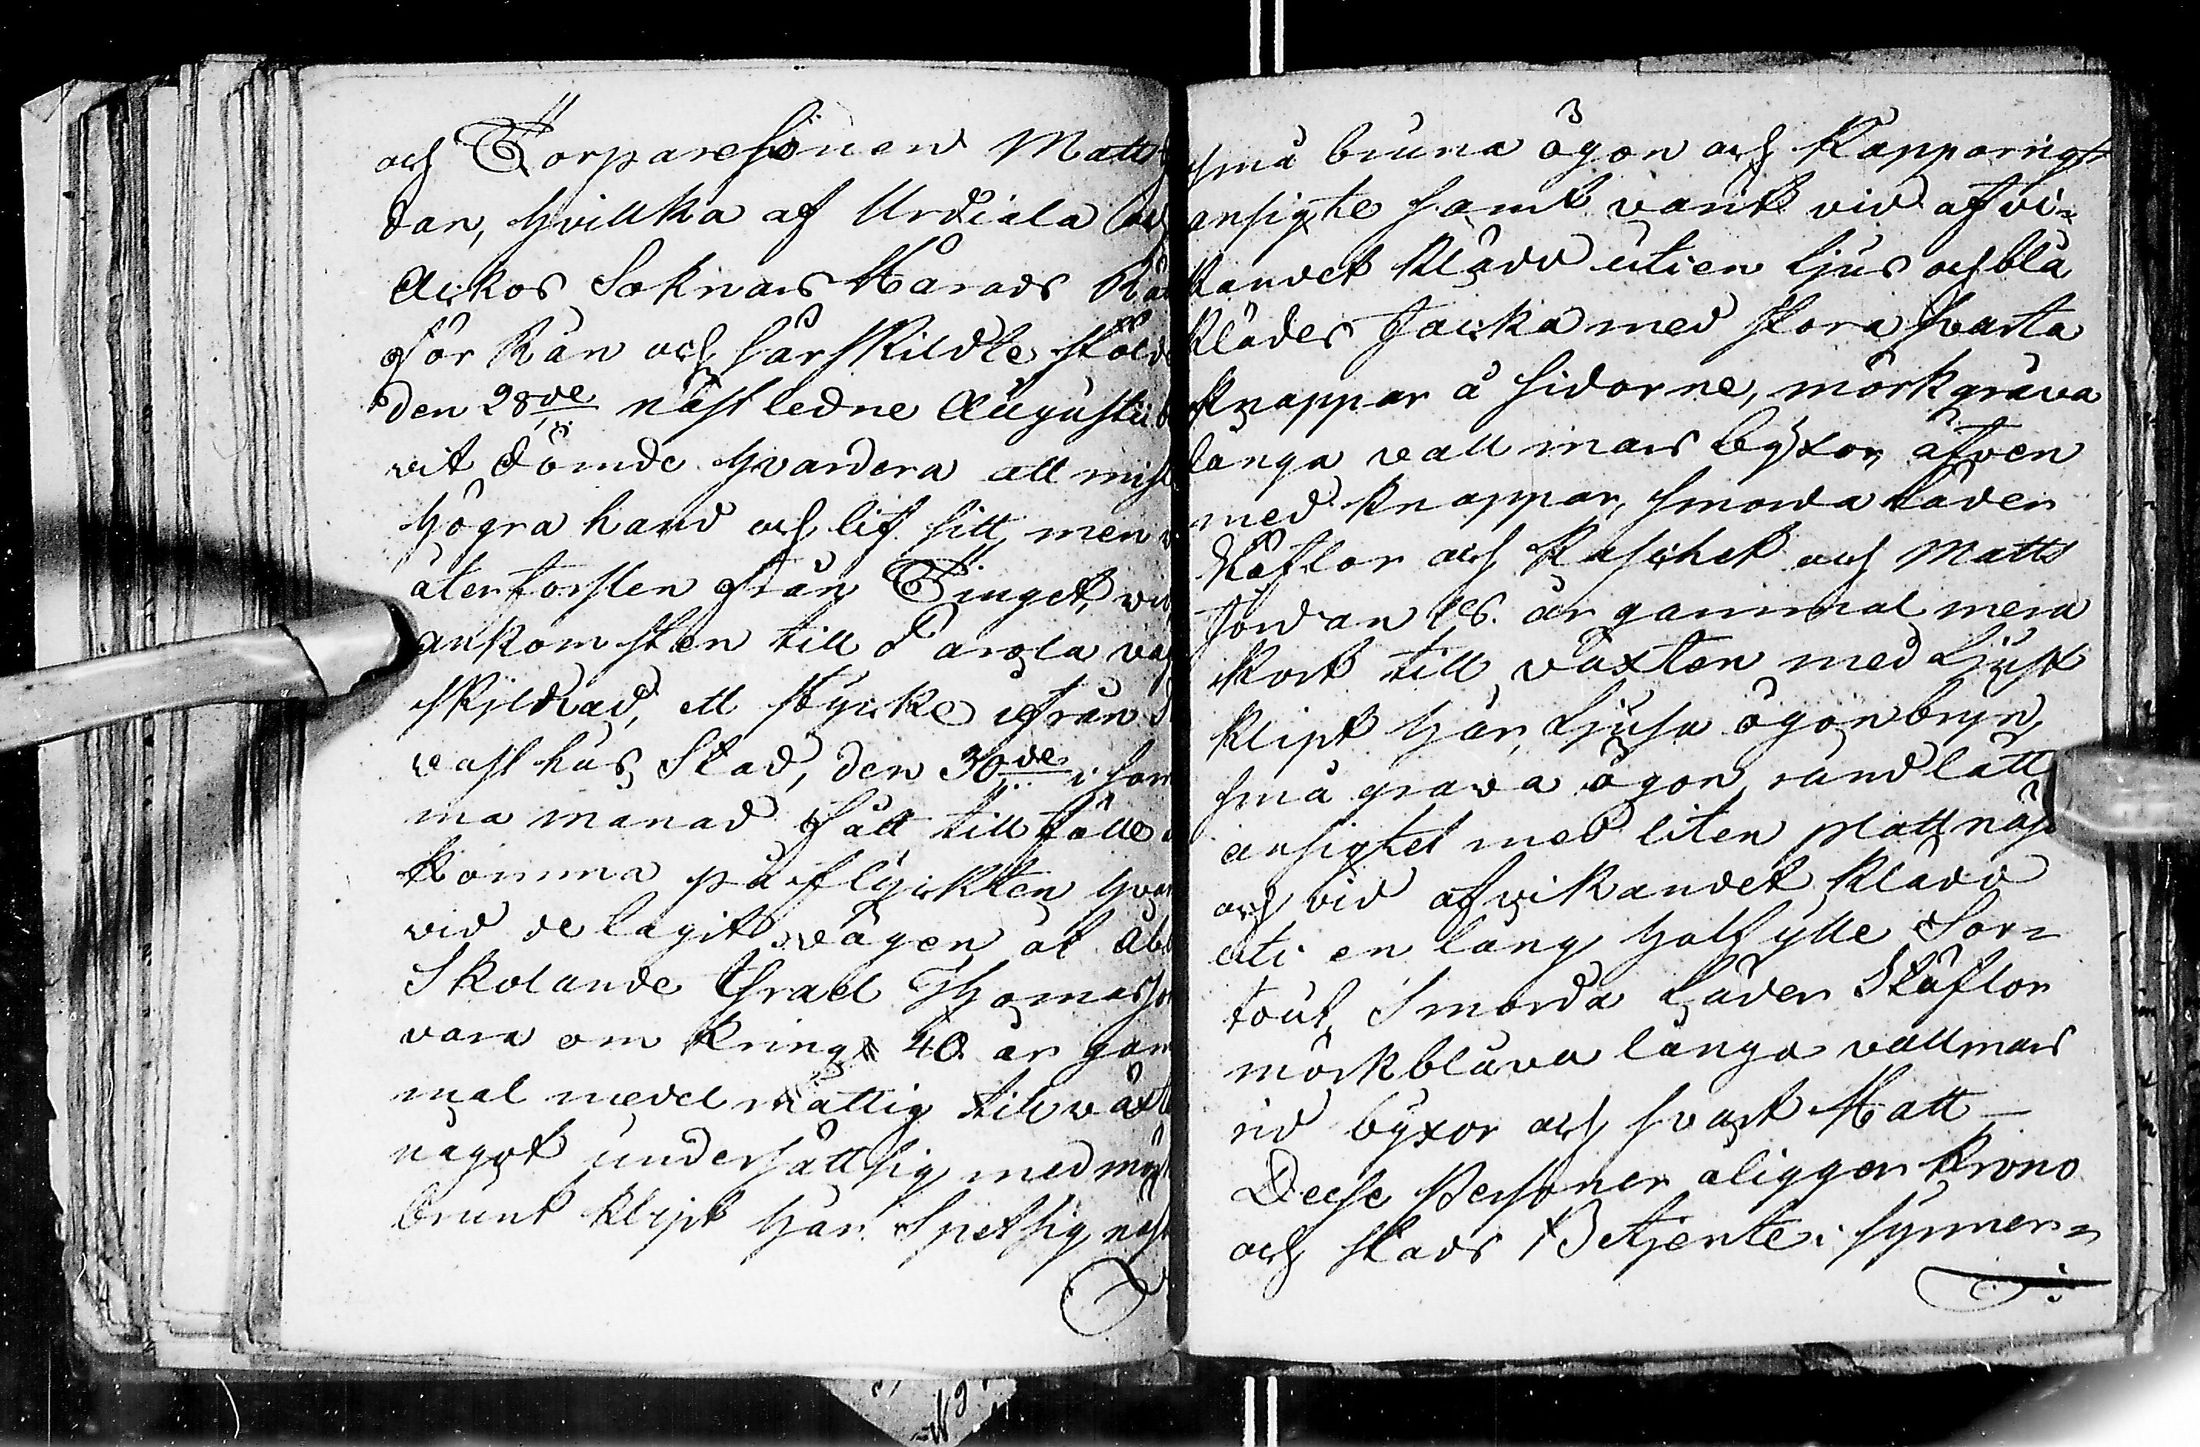 och Torparesönen Matts
dan, hvillka af Urdiala och
Ackos Soknars Härads Rä
för Rån och särskildte stöld
den 28de nästledne Augusti
vit dömde hvardera att mist
högra hand och lif sitt, men
återforslen från Tinget, vid
ankomsten till Parola
skyldrad, ett stycke ifrån
vasthus Stad, den 30de i sam
ma månad fått tillfälle
komma på flyckten hvar
vid de tagit vägen åt Åbo
Skolande Israel Thomasson
vara omkring 40 år gam
mal medelmåttig till växt
något undersättsig med mör
brunt klipt hår Spetsig näs
små bruna ögon och Kopparrigt
ansigte samt varit vid afvi=
kandet klädd uti en Ljus och blå
klädes Jacka med stora svarta
knappar å sidorne, mörkgråva
långa vallmars byxor, äfven
med knappar, smorda läder
stöflor och Kaschet och Matts
Jordan 18. år gammal mera
kort till växten med Ljust
klipt hår, Ljusa ögonbryn,
små gråva ögon, rundlätt
ansigtet med liten platt näsa
och vid afvikandet klädd
uti en lång halfylle Sor=
tout, Smorda Läder Stöflor
mörkblåva långa vallmars
rid byxor och svart Hatt —
Desse Personer åligger Krono
och stads Betjente i synner=